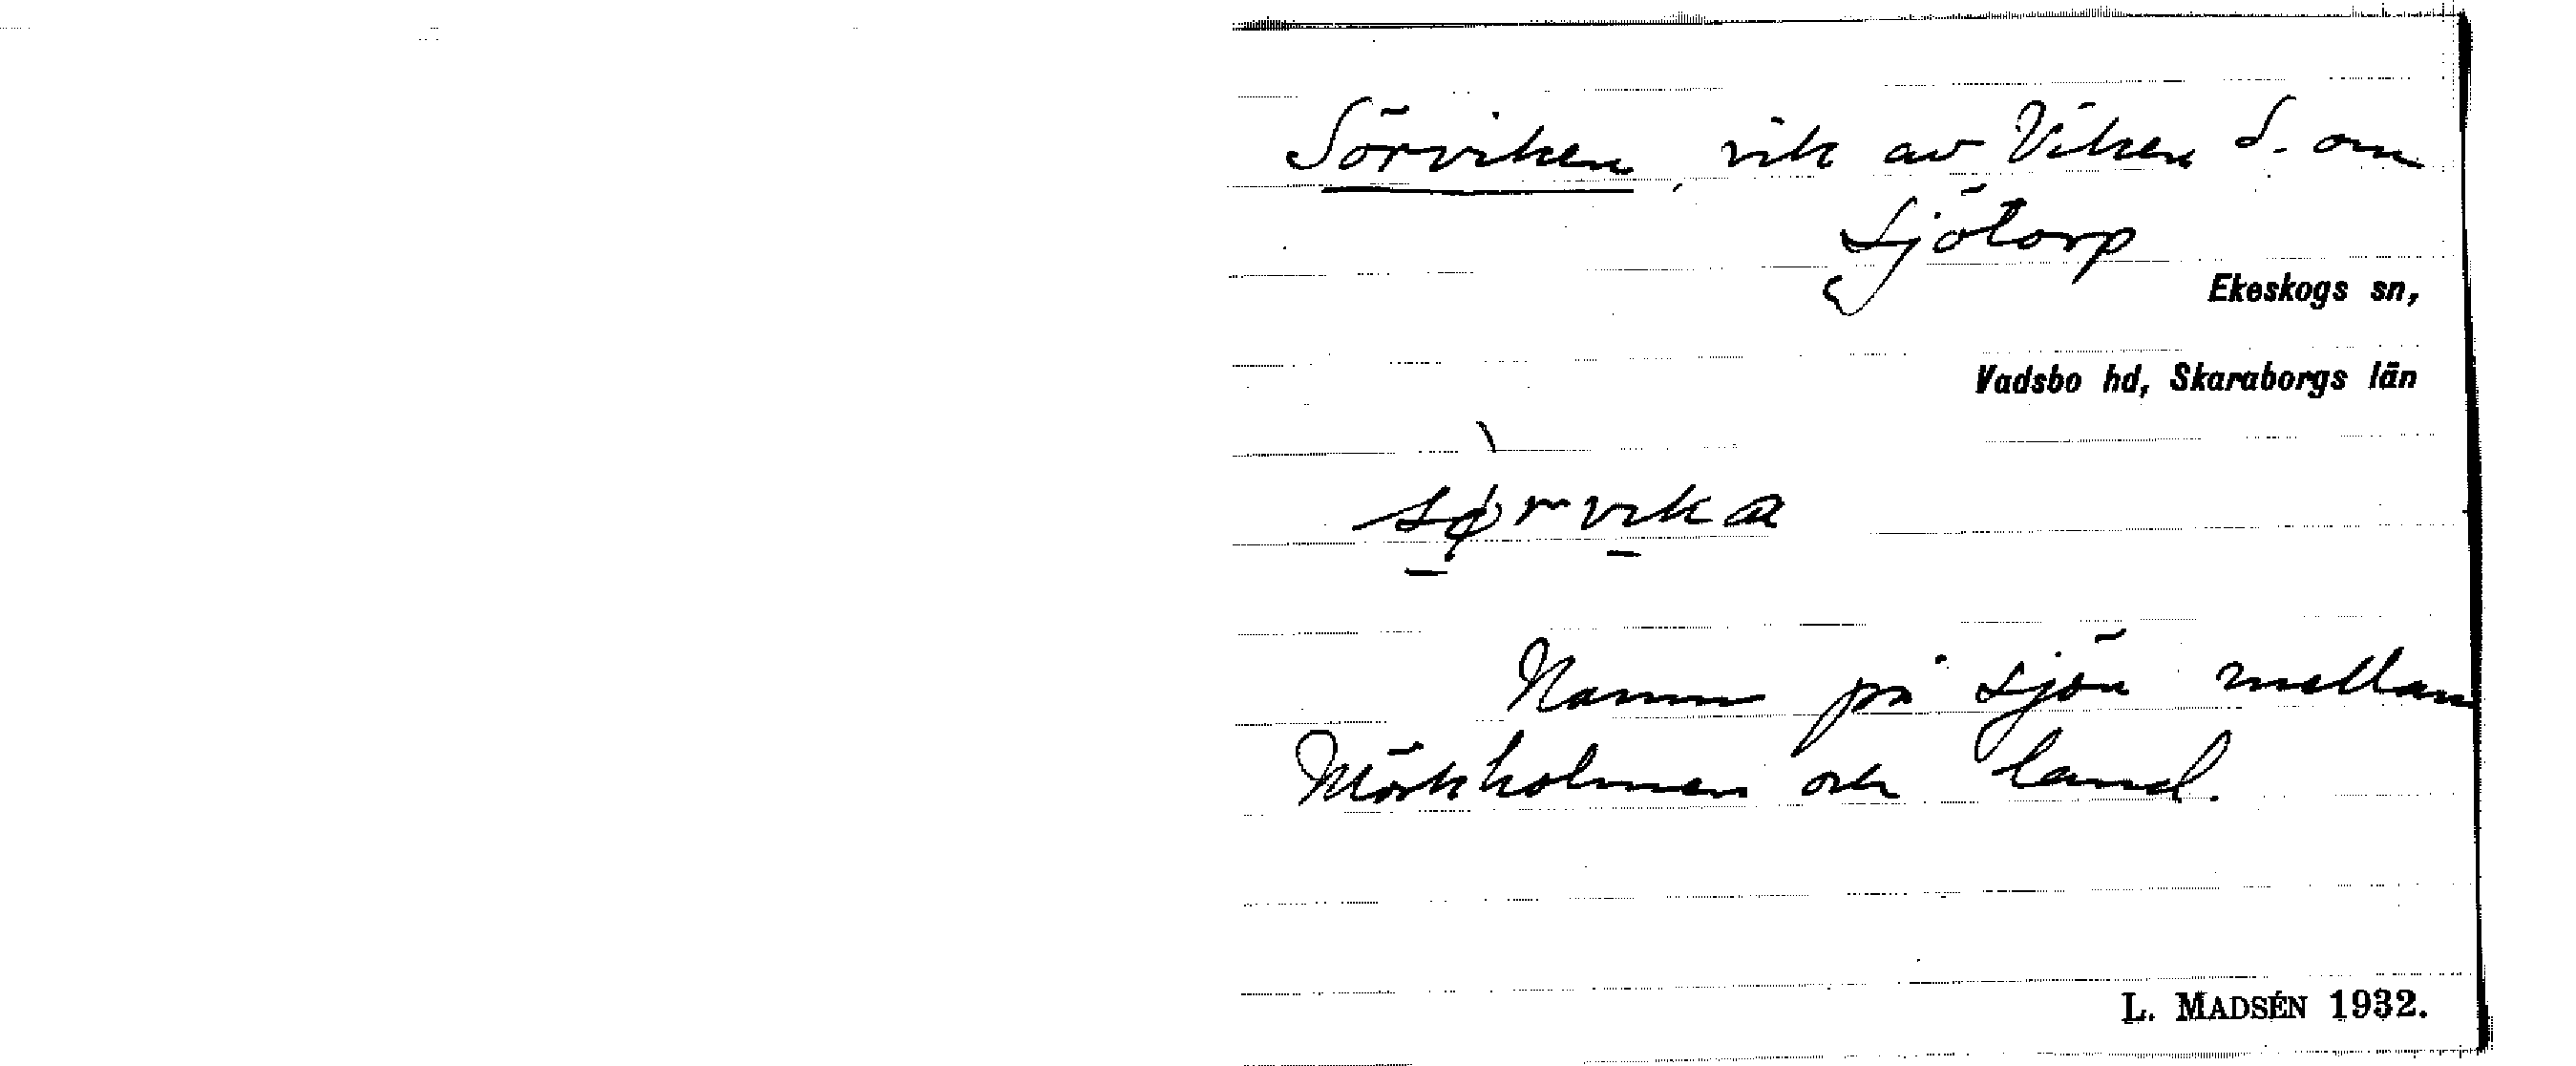 Sörviken, vik av Viken S. om
Sjötorp
Ekeskogs sn,
Vadsbo hd, Skaraborgs län
sørvika
Namn på sjön mellan
Mörkholmen och land.
L. MADSÉN 1932.